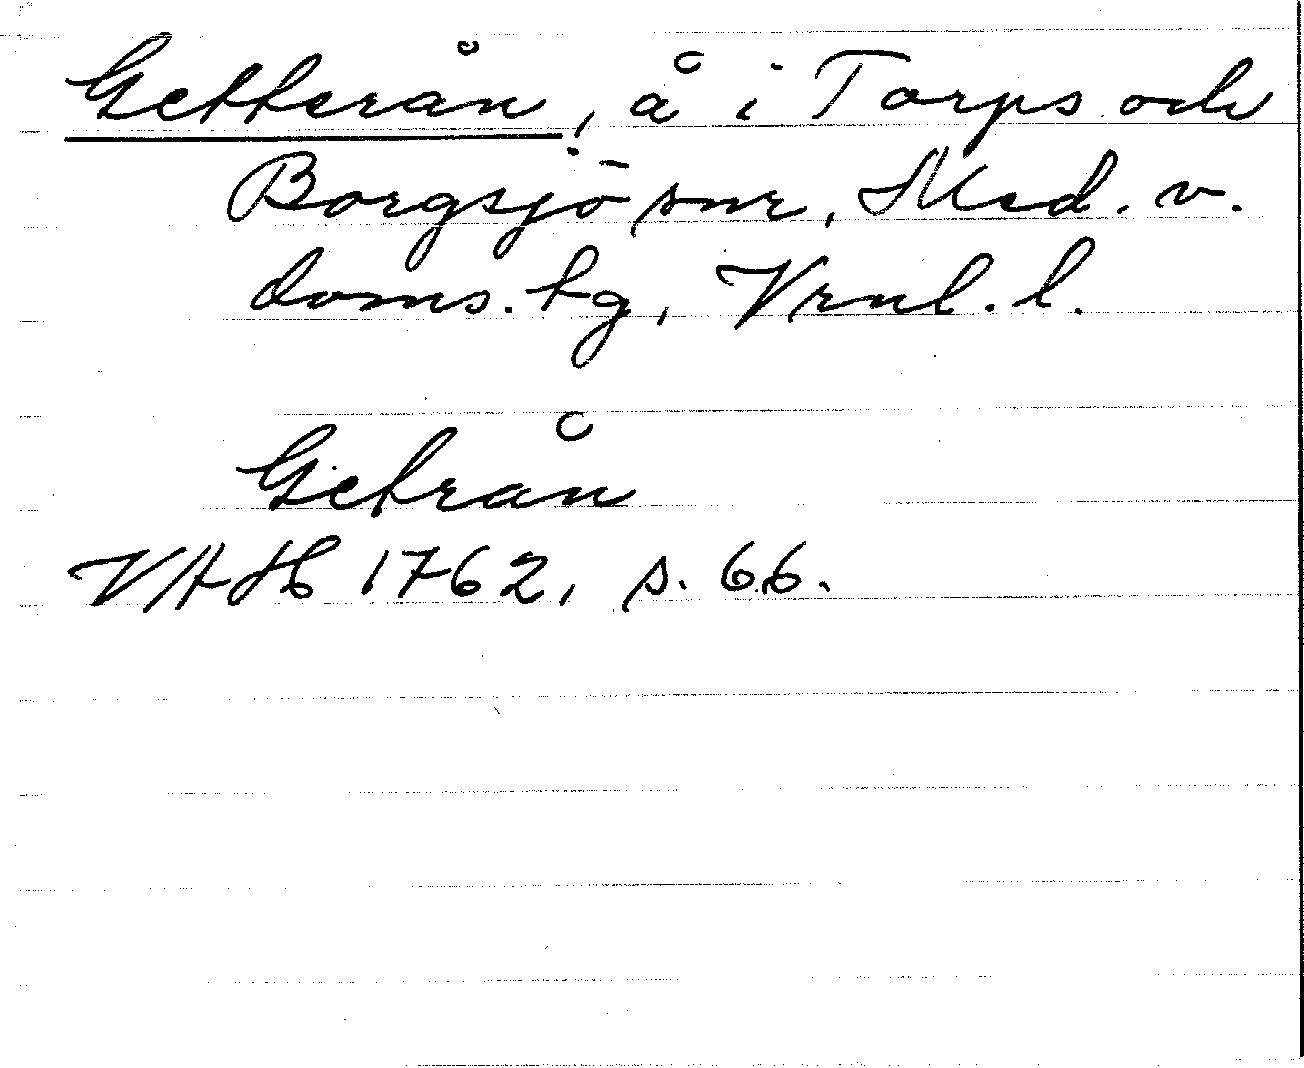 Getterån, å i Torps och
Borgsjö snr, Med. v.
doms. tg, Vrnl. l.
Getrån
VAH 1762, s. 66.